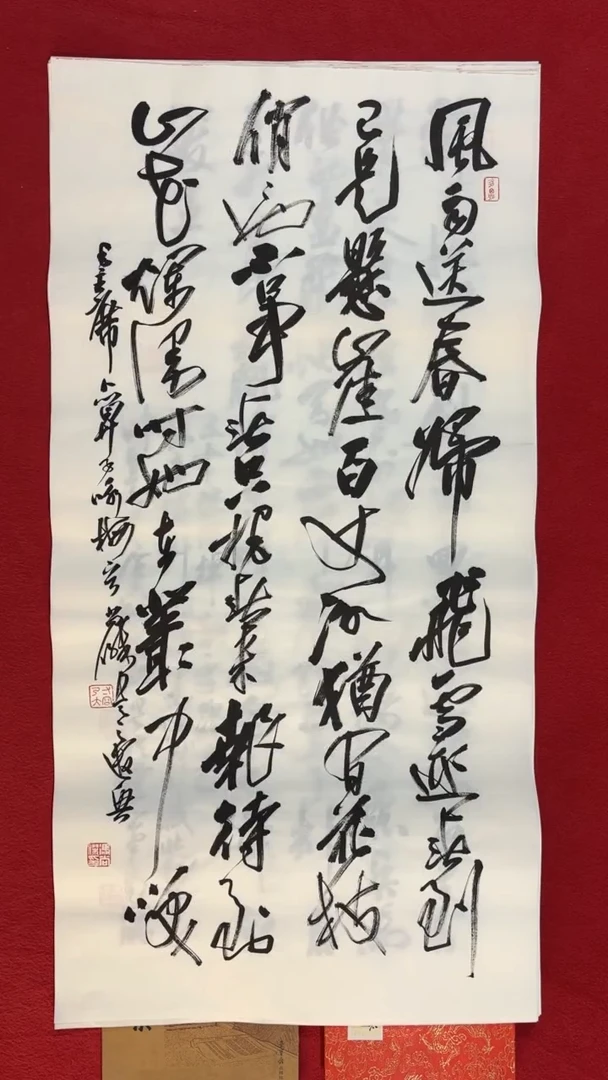 風雨送春歸飛雪迎春到
已是懸崖百丈冰猶有花枝
俏〻也不爭春只把春來報待到
山花爛漫時她在叢中咲
毛主席卜算子咏梅